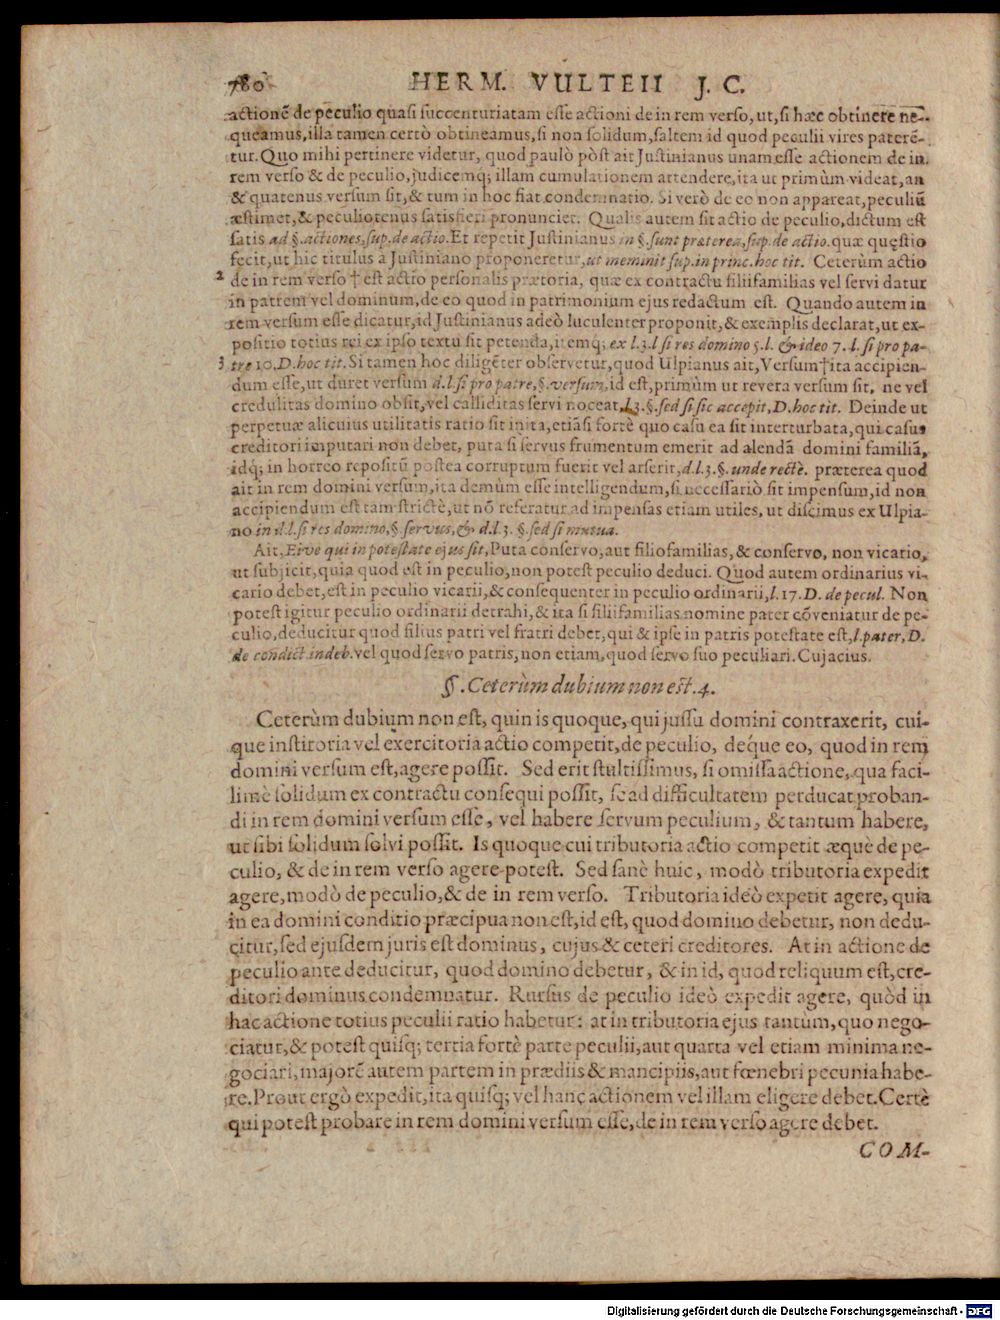 780 HERM. VULTEII J. C.
actionē de peculio quasi succenturiatam esse actioni de in rem verso, ut, si hæc obtinere ne-
queamus, illa tamen certò obtineamus, si non solidum, saltem id quod peculii vires paterē-
tur. Quo mihi pertinere videtur, quod paulò pòst ait Justinianus unam esse actionem de in
rem verso & de peculio, judicemq; illam cumulationem attendere, ita ut primùm videat, an
& quatenus versum sit, & tum in hoc fiat condemnatio. Si verò de eo non appareat, peculiū
æstimet, & peculiotenus satisfieri pronunciet. Qualis autem sit actio de peculio, dictum est
satis ad §. actiones, sup. de actio. Et repetit Justinianus in §. sunt præterea, sup. de actio. quæ quęstio
fecit, ut hic titulus à Justiniano proponeretur, ut meminit sup. in princ. hoc tit. Ceterùm actio
2 de in rem verso † est actio personalis prætoria, quæ ex contractu filiifamilias vel servi datur
in patrem vel dominum, de eo quod in patrimonium ejus redactum est. Quando autem in
rem versum esse dicatur, id Justinianus adeò luculenter proponit, & exemplis declarat, ut ex-
positio totius rei ex ipso textu sit petenda, itemq; ex l. 3. l si res domino 5. l. & ideo 7. l. si pro pa-
3 tre 10. D. hoc tit. Si tamen hoc diligēter observetur, quod Ulpianus ait, Versum † ita accipien-
dum esse, ut duret versum d. l. si pro patre, §. versum, id est, primùm ut revera versum sit, ne vel
credulitas domino obsit, vel calliditas servi noceat, l. 3. §. sed si sic accepit, D. hoc tit. Deinde ut
perpetuæ alicuius utilitatis ratio sit inita, etiāsi fortè quo casu ea sit interturbata, qui casus
creditori imputari non debet, puta si servus frumentum emerit ad alendā domini familiā,
idq; in horreo repositū postea corruptum fuerit vel arserit, d. l. 3. §. unde rectè. præterea quod
ait in rem domini versum, ita demùm esse intelligendum, si necessariò sit impensum, id non
accipiendum est tam strictè, ut nō referatur ad impensas etiam utiles, ut discimus ex Ulpia-
no in d. l. si res domino, §. servus, & d. l. 3. §. sed si mutua.
Ait, Eive qui in potestate ejus sit, Puta conservo, aut filiofamilias, & conservo, non vicario,
ut subjicit, quia quod est in peculio, non potest peculio deduci. Quod autem ordinarius vi-
cario debet, est in peculio vicarii, & consequenter in peculio ordinarii, l. 17. D. de pecul. Non
potest igitur peculio ordinarii detrahi, & ita si filiifamilias nomine pater cōveniatur de pe-
culio, deducitur quod filius patri vel fratri debet, qui & ipse in patris potestate est, l. pater, D.
de condict. indeb. vel quod servo patris, non etiam, quod servo suo peculiari. Cujacius.
§. Ceterùm dubium non est. 4.
Ceterùm dubium non est, quin is quoque, qui jussu domini contraxerit, cui-
que institoria vel exercitoria actio competit, de peculio, deque eo, quod in rem
domini versum est, agere possit. Sed erit stultissimus, si omissa actione, qua faci-
limè solidum ex contractu consequi possit, se ad difficultatem perducat proban-
di in rem domini versum esse, vel habere servum peculium, & tantum habere,
ut sibi solidum solvi possit. Is quoque cui tributoria actio competit æquè de pe-
culio, & de in rem verso agere potest. Sed sanè huic, modò tributoria expedit
agere, modò de peculio, & de in rem verso. Tributoria ideò expetit agere, quia
in ea domini conditio præcipua non est, id est, quod domino debetur, non dedu-
citur, sed ejusdem juris est dominus, cujus & ceteri creditores. At in actione de
peculio ante deducitur, quod domino debetur, & in id, quod reliquum est, cre-
ditori dominus condemnatur. Rursus de peculio ideò expedit agere, quòd in
hac actione totius peculii ratio habetur: at in tributoria ejus tantùm, quo nego-
ciatur, & potest quisq; tertia fortè parte peculii, aut quarta vel etiam minima ne-
gociari, majorē autem partem in prædiis & mancipiis, aut fœnebri pecunia habe-
re. Prout ergò expedit, ita quisq; vel hanc actionem vel illam eligere debet. Certè
qui potest probare in rem domini versum esse, de in rem verso agere debet.
COM-
Digitalisierung gefördert durch die Deutsche Forschungsgemeinschaft - DFG